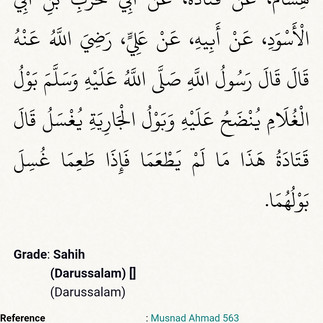 هِشَامٌ، عَنْ قَتَادَةَ، عَنْ أَبِي حَرْبِ بْنِ أَبِي
الْأَسْوَدِ، عَنْ أَبِيهِ، عَنْ عَلِيٍّ، رَضِيَ اللَّهُ عَنْهُ
قَالَ قَالَ رَسُولُ اللَّهِ صَلَّى اللَّهُ عَلَيْهِ وَسَلَّمَ بَوْلُ
الْغُلَامِ يُنْضَحُ عَلَيْهِ وَبَوْلُ الْجَارِيَةِ يُغْسَلُ قَالَ
قَتَادَةُ هَذَا مَا لَمْ يَطْعَمَا فَإِذَا طَعِمَا غُسِلَ
بَوْلُهُمَا.
Grade: Sahih
(Darussalam) []
(Darussalam)
Reference : Musnad Ahmad 563